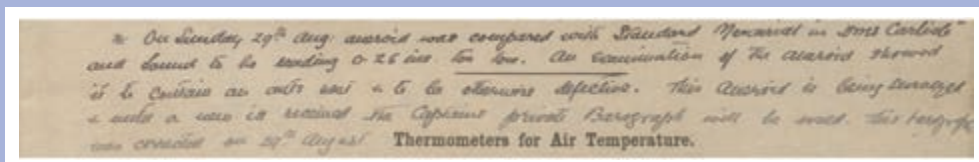 * On Sunday 29th Aug: aneroid was compared with Standard Mercurial in HMS Carlisle
and found to be reading 0.26 ins too low. An examination of the aneroid showed
it to contain an and to be otherwise defective. This aneroid is being surveyed
& until a new is received the Captains private Barograph will be used. This barograph
was corrected on 29th August Thermometers for Air Temperature.